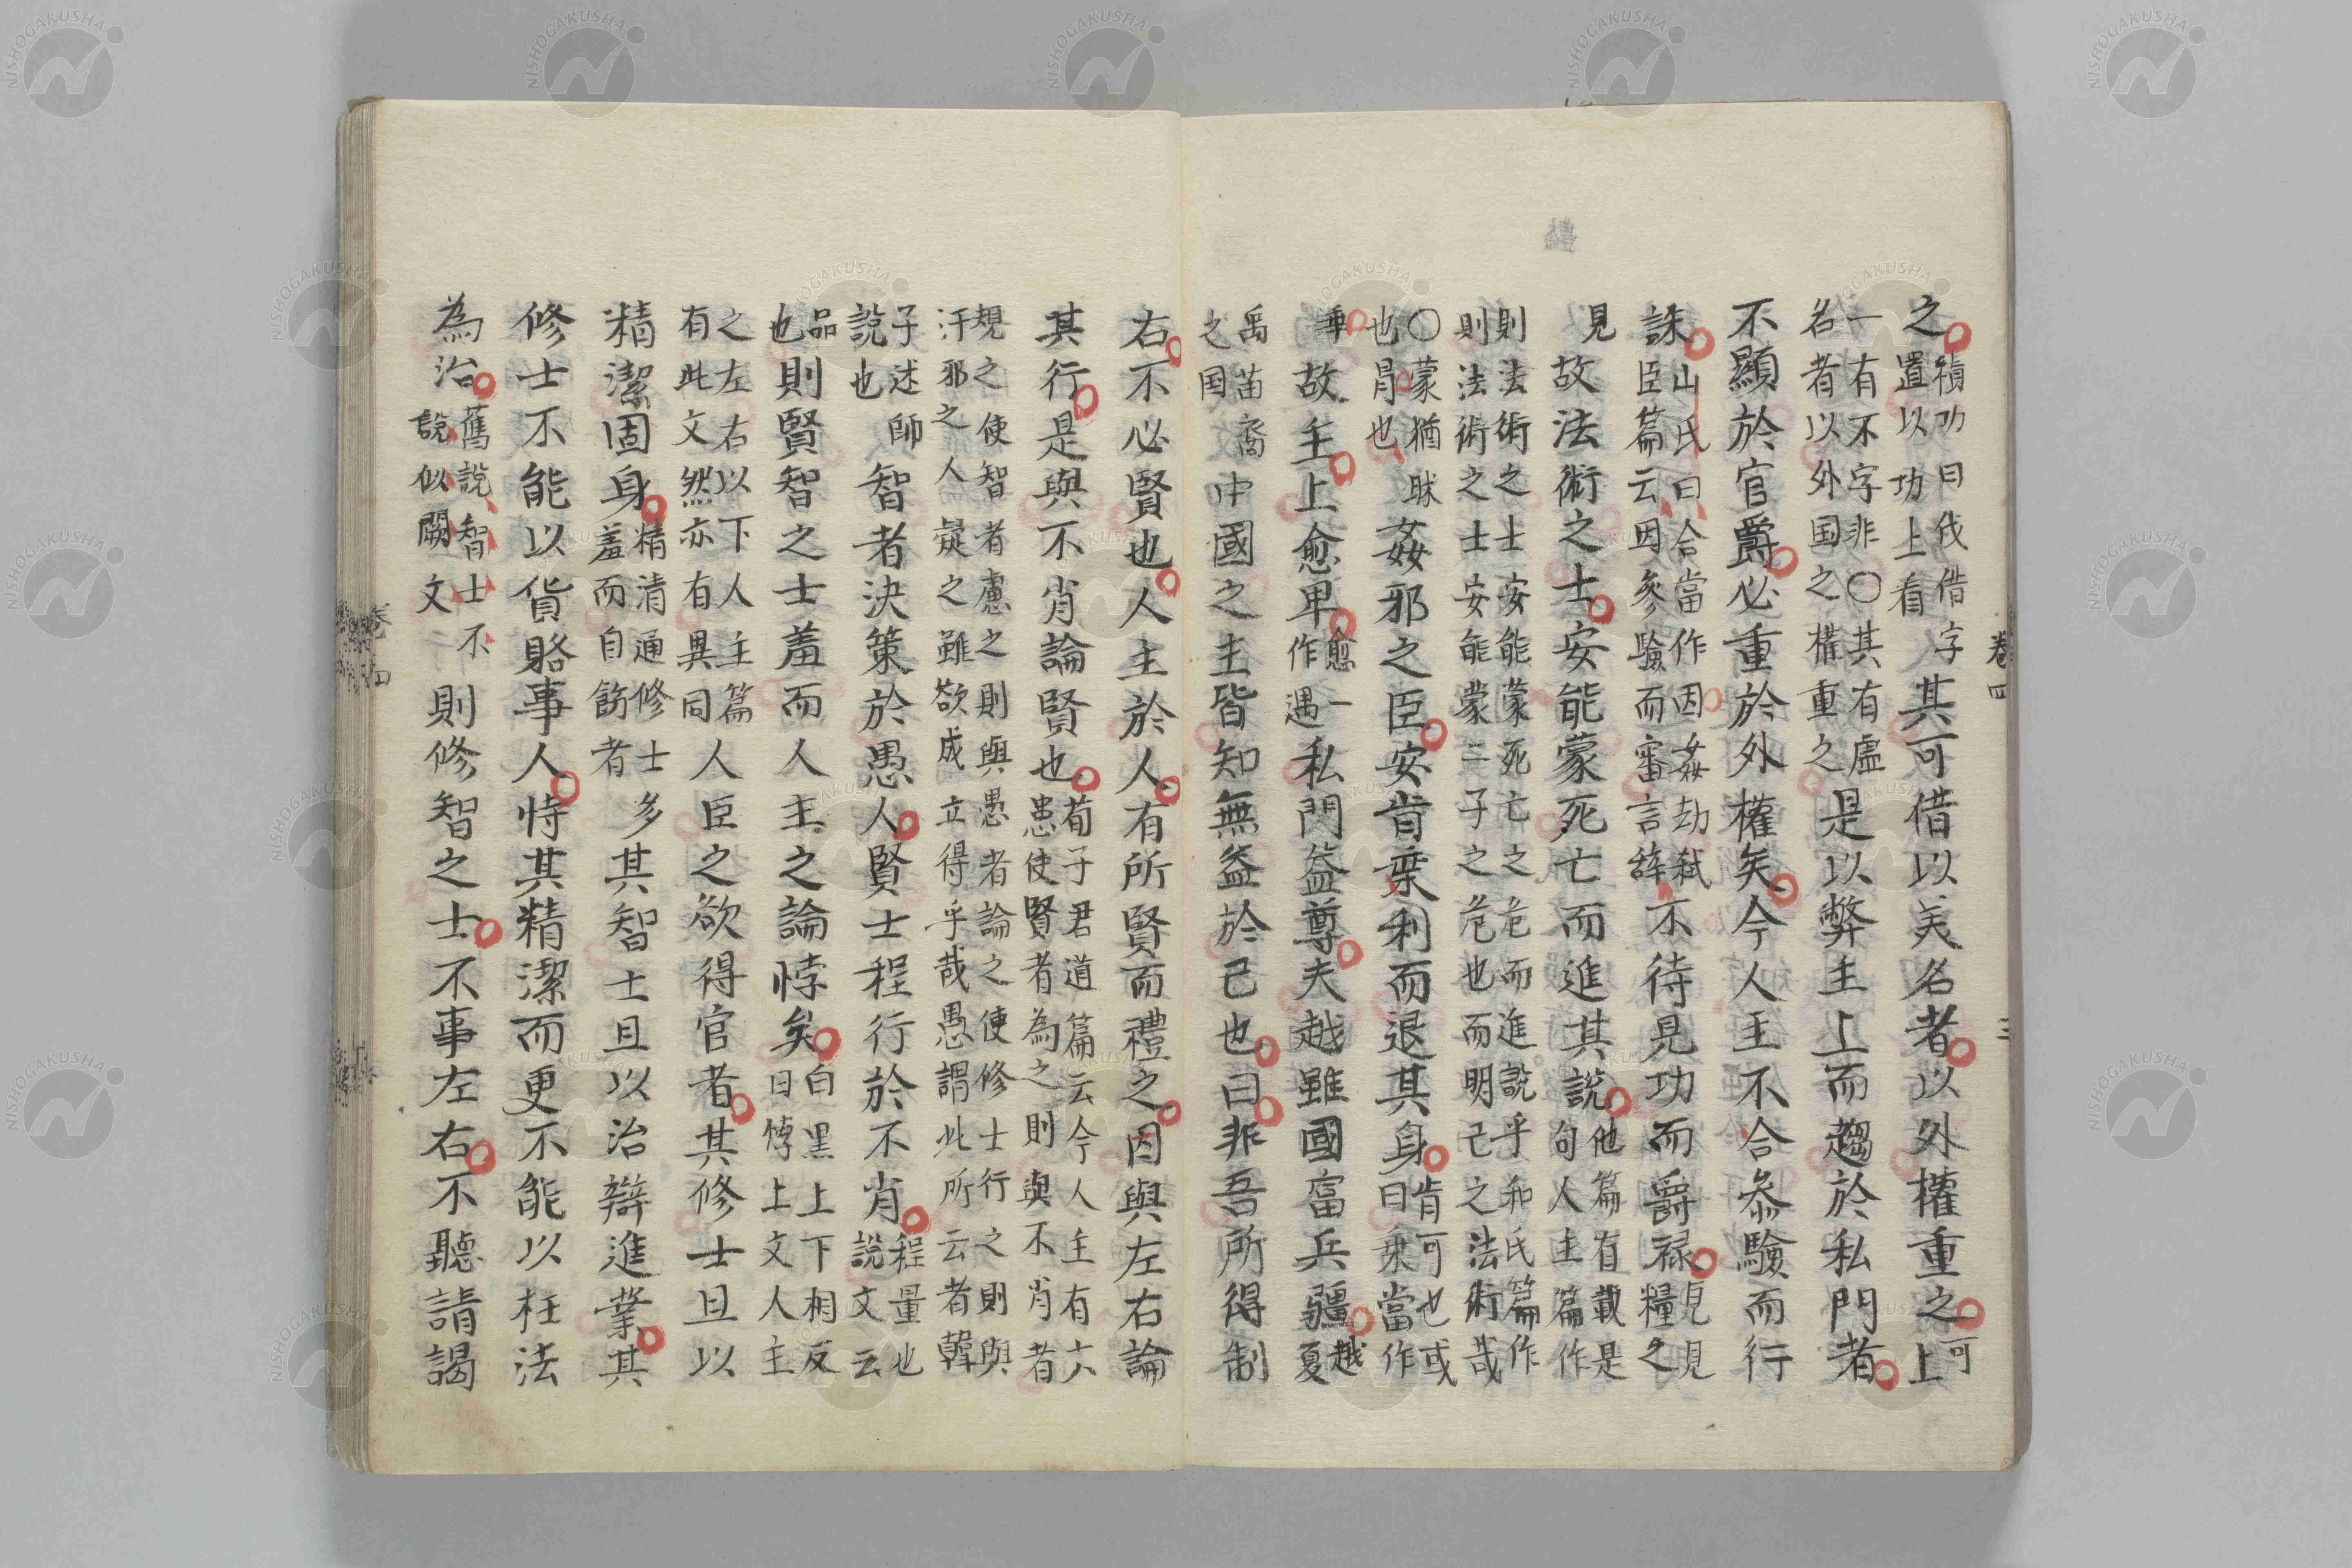 之積功曰伐借字置以功上看其可借以美名者以外權重之可上
一有不字非〇其有虛名者以外国之構重之是以弊主上而趨於私門者
不顯於官爵必重於外權矣今人主不合參驗而行
誅山氏曰合當作因姦劫弒臣篇云因參驗而審言辞不待見功而爵禄見糧之
見故法術之士安能蒙死亡而進其說他篇有載是句人主篇作
則法術之士安能蒙死亡之危而進說乎和氏篇作則法術之士安能蒙二子之危也而明己之法術哉
〇蒙猶昧也冐也姦邪之臣安肯乗利而退其身肯可也或曰乗當作
棄故主上愈卑愈一作遇私門益尊夫越雖國富兵彊越夏
禹苗裔之国中國之主皆知無益於己也曰非吾所得制
卷四 三
右不必賢也人主於人有所賢而禮之因與左右論
其行是與不肖論賢也荀子君道篇云今人主有六患使賢者為之則與不肖者
規之使智者慮之則與愚者論之使修士行之則與汙邪之人疑之雖欲成立得乎哉愚謂此所云者韓
子述師說也智者決策於愚人賢士程行於不肖程量也說文云
品也則賢智之士羞而人主之論悖矣白黒上下相反曰悖上文人主
之左右以下人主篇有此文然亦有異同人臣之欲得官者其修士且以
精潔固身精清通修士多羞而自飭者其智士且以治辯進業其
修士不能以貨賂事人恃其精潔而更不能以枉法
為治舊說智士不說似闕文則修智之士不事左右不聽請謁
卷四